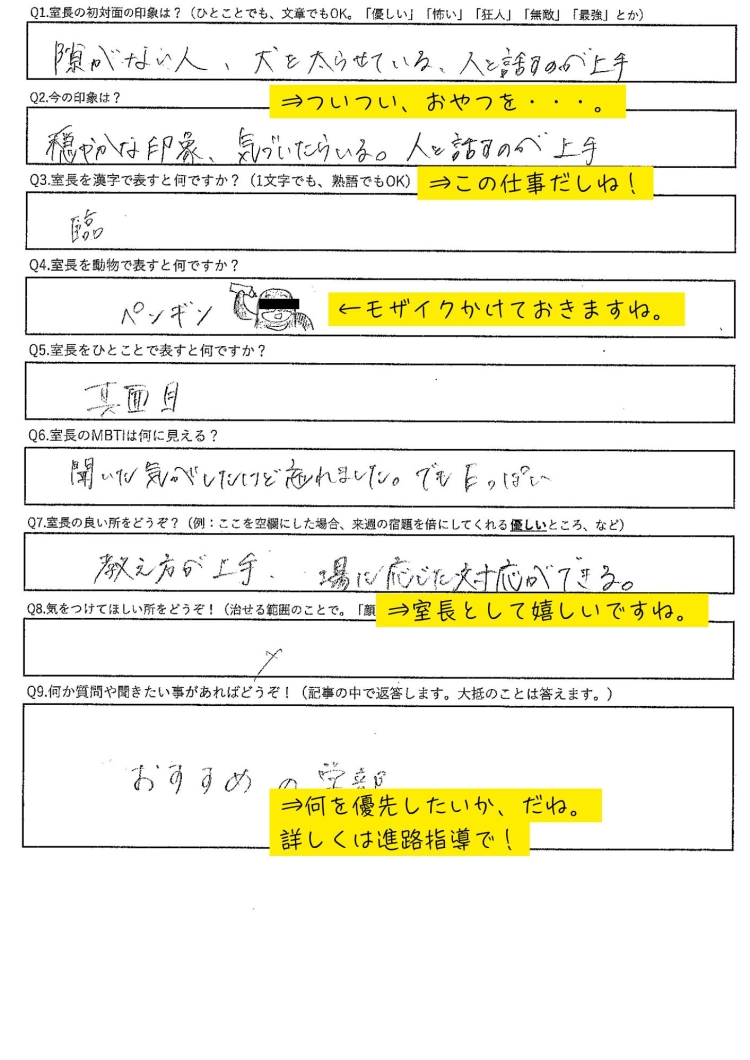 Q1.室長の初対面の印象は？（ひとことでも、文章でもOK。「優しい」「怖い」「狂人」「無敵」「最強」とか）
隙がない人、犬を太らせている、人と話すのが上手
Q2.今の印象は？
⇒ついつい、おやつを・・・。
穏やかな印象、気づいたらいる。人と話すのが上手
Q3.室長を漢字で表すと何ですか？（1文字でも、熟語でもOK）
⇒この仕事だしね！
臨
Q4.室長を動物で表すと何ですか？
ペンギン
←モザイクかけておきますね。
Q5.室長をひとことで表すと何ですか？
真面目
Q6.室長のMBTIは何に見える？
聞いた気がしたけど忘れました。でもEっぽい
Q7.室長の良い所をどうぞ？（例：ここを空欄にした場合、来週の宿題を倍にしてくれる優しいところ、など）
教え方が上手、場に応じた対応ができる。
Q8.気をつけてほしい所をどうぞ！（治せる範囲のことで。「顔
⇒室長として嬉しいですね。
Q9.何か質問や聞きたい事があればどうぞ！（記事の中で返答します。大抵のことは答えます。）
おすすめの学部
⇒何を優先したいか、だね。
詳しくは進路指導で！